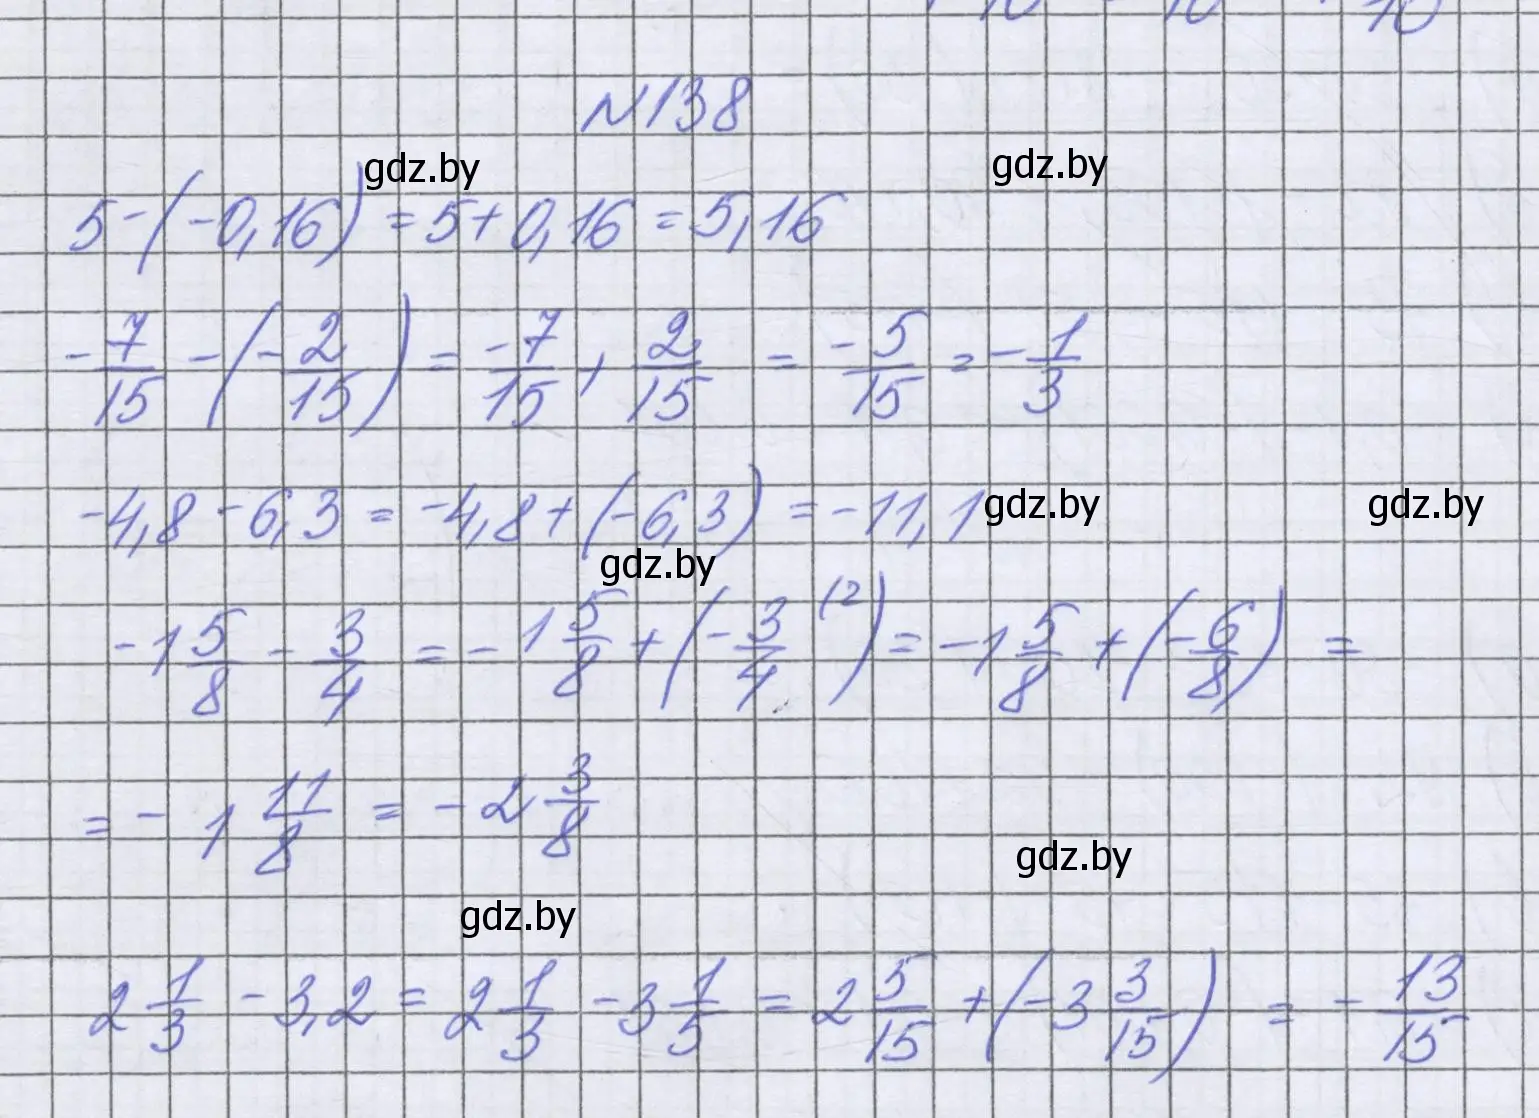 №138
gdz.by gdz.by
5 - (-0,16) = 5 + 0,16 = 5,16
-7/15 - (-2/15) = -7/15 + 2/15 = -5/15 = -1/3
-4,8 - 6,3 = -4,8 + (-6,3) = -11,1
gdz.by gdz.by
gdz.by
-1 5/8 - 3/4 = -1 5/8 + (-3/4 (2) = -1 5/8 + (-6/8) =
= -1 11/8 = -2 3/8
gdz.by
gdz.by
2 1/3 - 3,2 = 2 1/3 - 3 1/5 = 2 5/15 + (-3 3/15) = -13/15